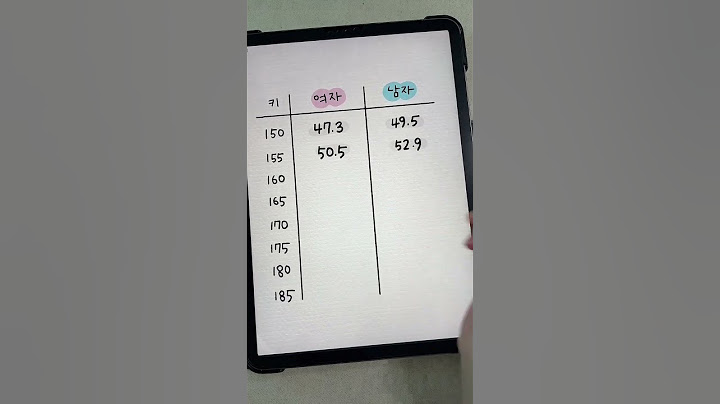 키 여자 남자
150 47.3 49.5
155 50.5 52.9
160
165
170
175
180
185